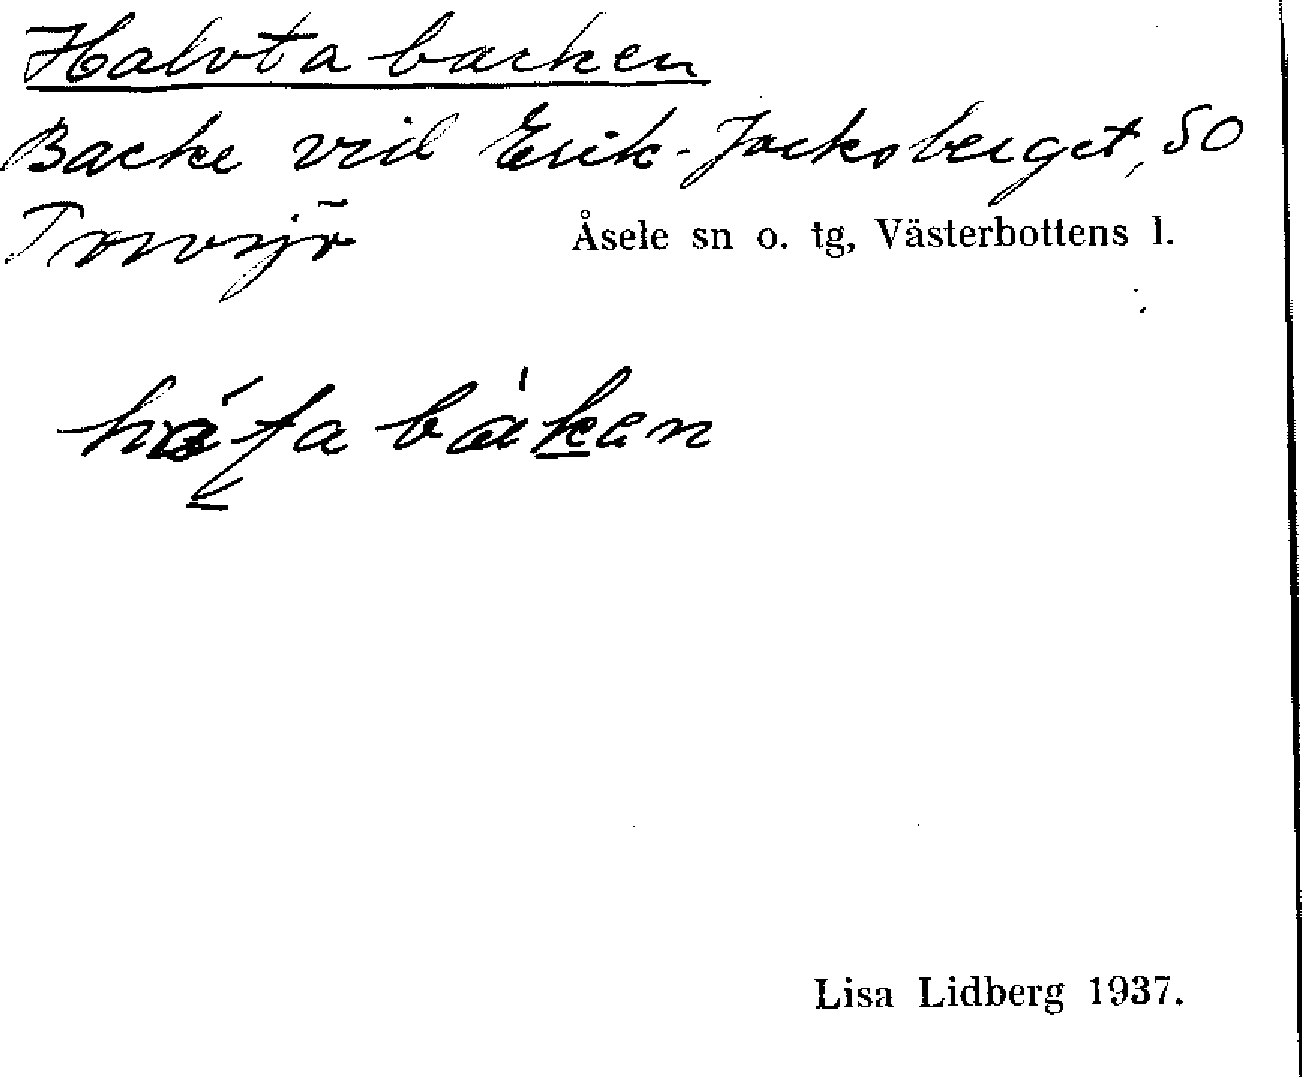 Halvtabacken
Backe vid Erik-Jacksberget, SO
Åsele sn o. tg, Västerbottens l.
Lisa Lidberg 1937.